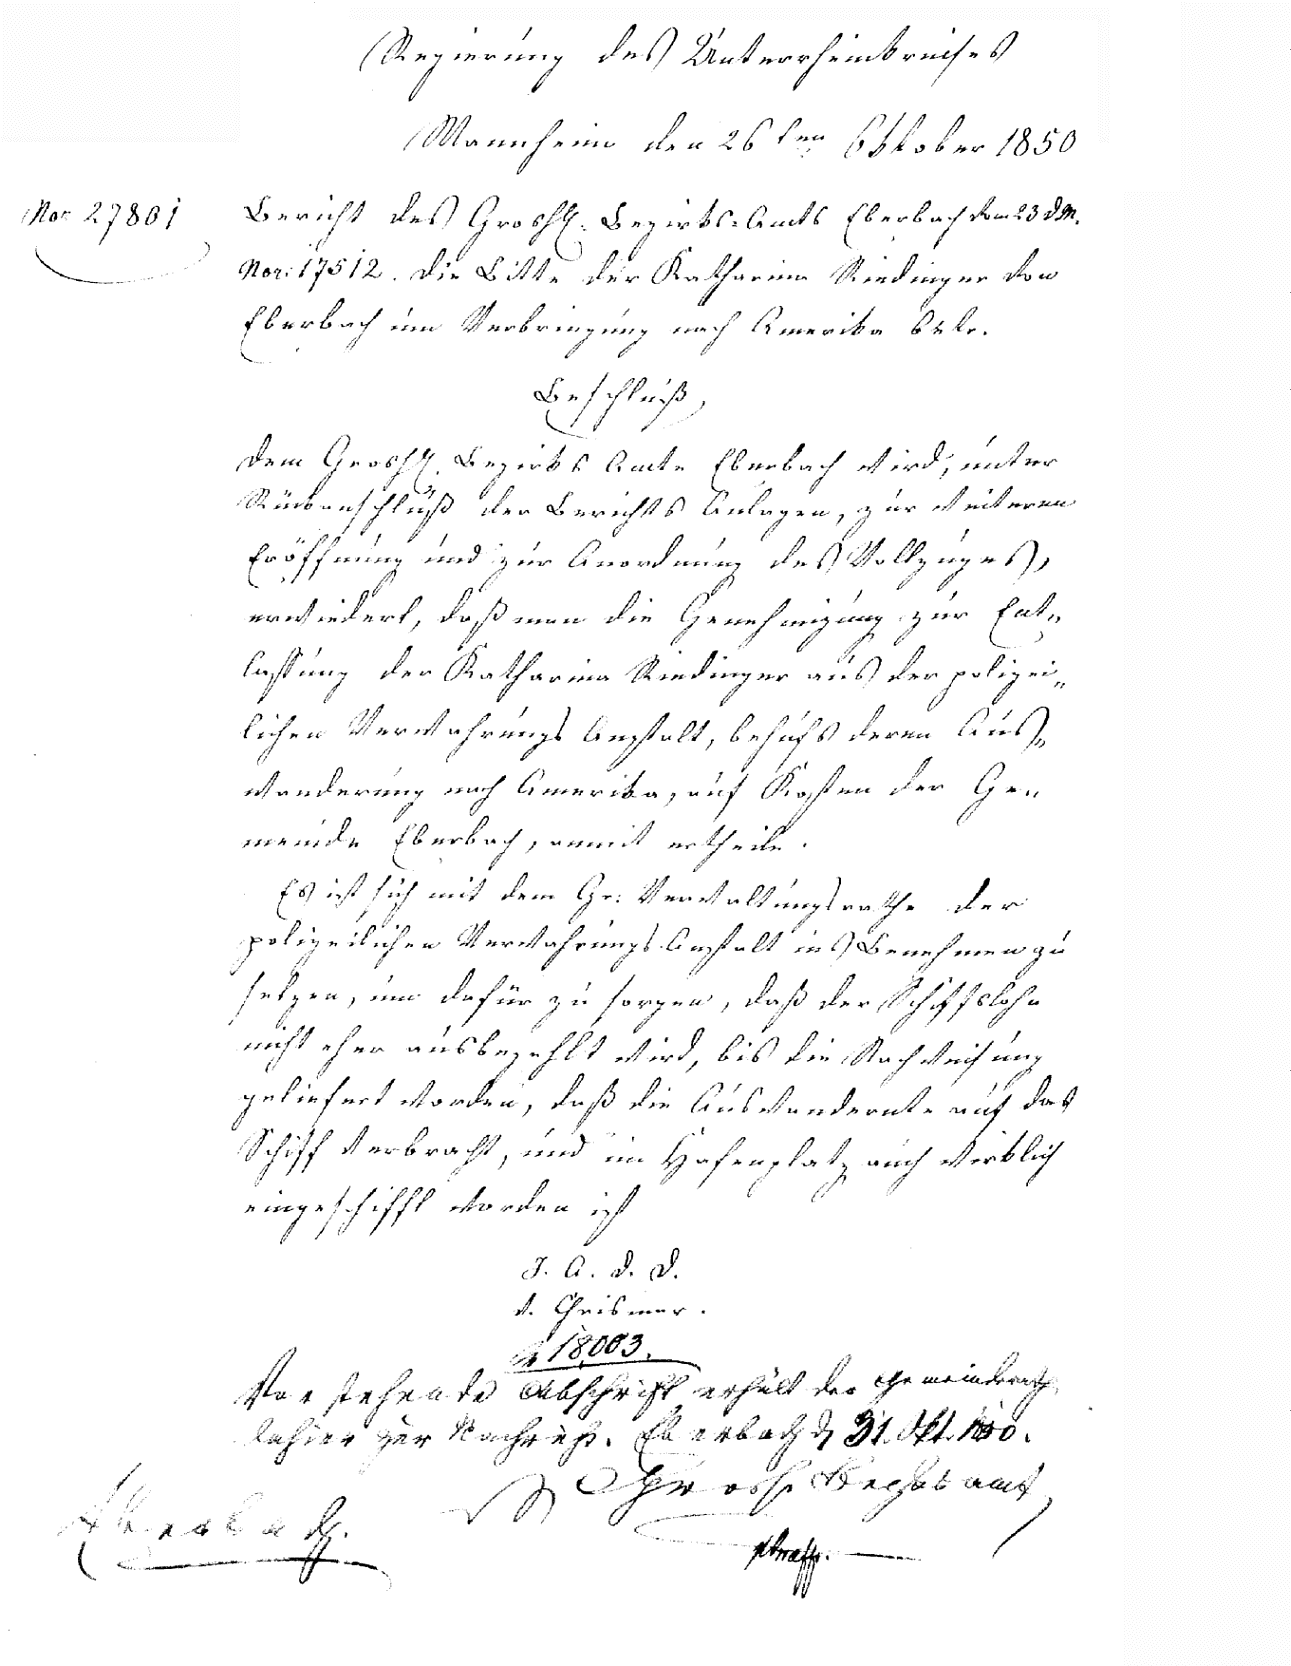 Regierung des Unterrheinkreises
Mannheim den 26ten Oktober 1850
Nor. 27801
Bericht des Grosh. Bezirks-Amts Eberbach vom 23 d. M.
Nor: 17512. die Bitte der Katharina Riedinger von
Eberbach um Verbringung nach Amerika betr.
Beschluß,
Dem Grosh. Bezirks Amte Eberbach wird, unter
Rückanschluß der Berichts Anlagen, zur weiteren
Eröffnung und zur Anordnung des Vollzuges,
erwiedert, daß man die Genehmigung zur Ent„
lassung der Katharina Riedinger aus der polizei„
lichen Verwahrungs Anstalt, behufs deren Aus„
wanderung nach Amerika, auf Kosten der Ge„
meinde Eberbach, anmit ertheile.
Es ist sich mit dem Gr: Verwaltungsrathe der
polizeilichen Verwahrungs Anstalt ins Benehmen zu
setzen, um dafür zu sorgen, daß der Schiffslohn
nicht eher ausbezahlt wird, bis die Nachweisung
geliefert worden, daß die Auswandernte auf das
Schiff verbracht, und im Hafenplatz auch wirklich
eingeschifft worden ist
J. A. d. D.
v. Chrismar.
18,003.
Vorstehende Abschrift erhält der Gemeinderath
dahier zur Nachricht. Eberbach d 31. Okt. 1850.
Grosh. Bezirksamt
Eberbach.